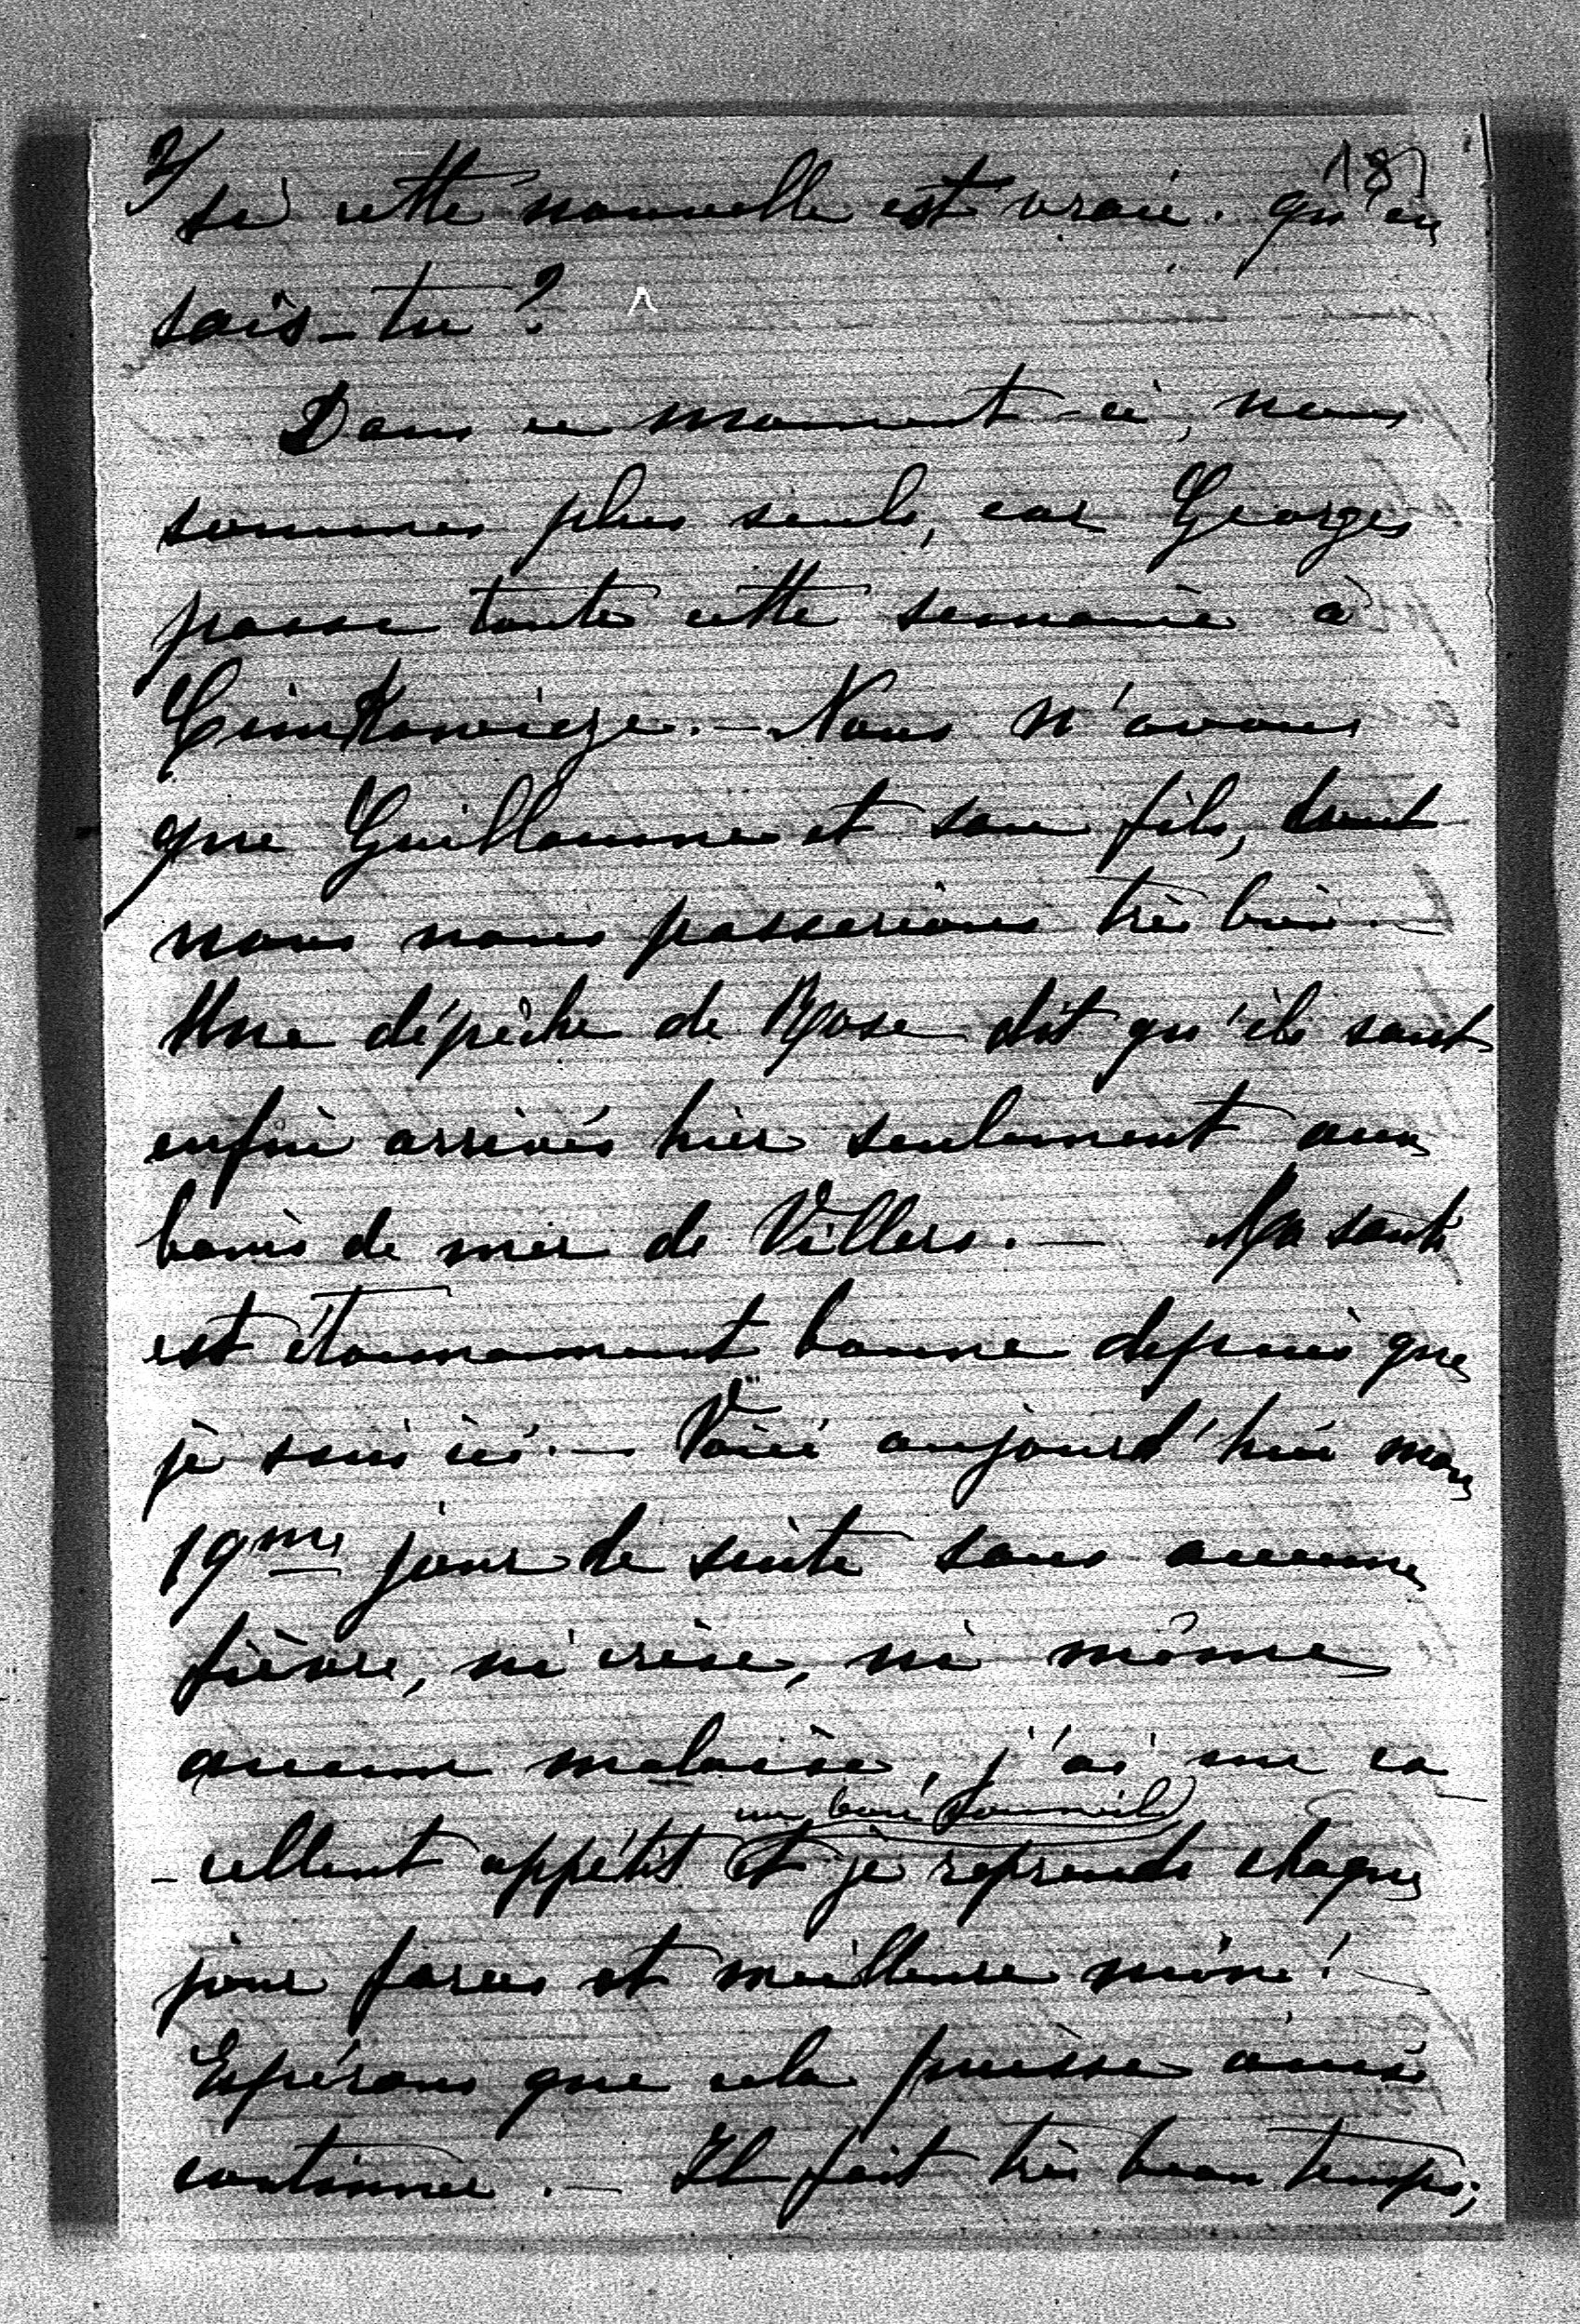 2/ 187
si cette nouvelle est vraie. qu'en
sais-tu?
Dans ce moment-ci, nous
sommes plus seuls, car Georges
passe toute cette semaine à
Cimkowicze. — Nous n'avons
que Guillaume et son fils, dont
nous nous passerions très bien. —
Une dépêche de Rose dit qu'ils sont
enfin arrivés hier seulement aux
bains de mer de Villers. — Ma santé
est étonnamment bonne depuis que
je suis ici. — Voici aujourd'hui mon
19me jour de suite sans aucune
fièvre, ni crise, ni même
aucun malaise, j'ai une ex-
un bon sommeil
-cellent appétit et je reprends chaque
jour forces et meilleure mine!
Espérons que cela puisse ainsi
continuer. — Il fait très beau temps;